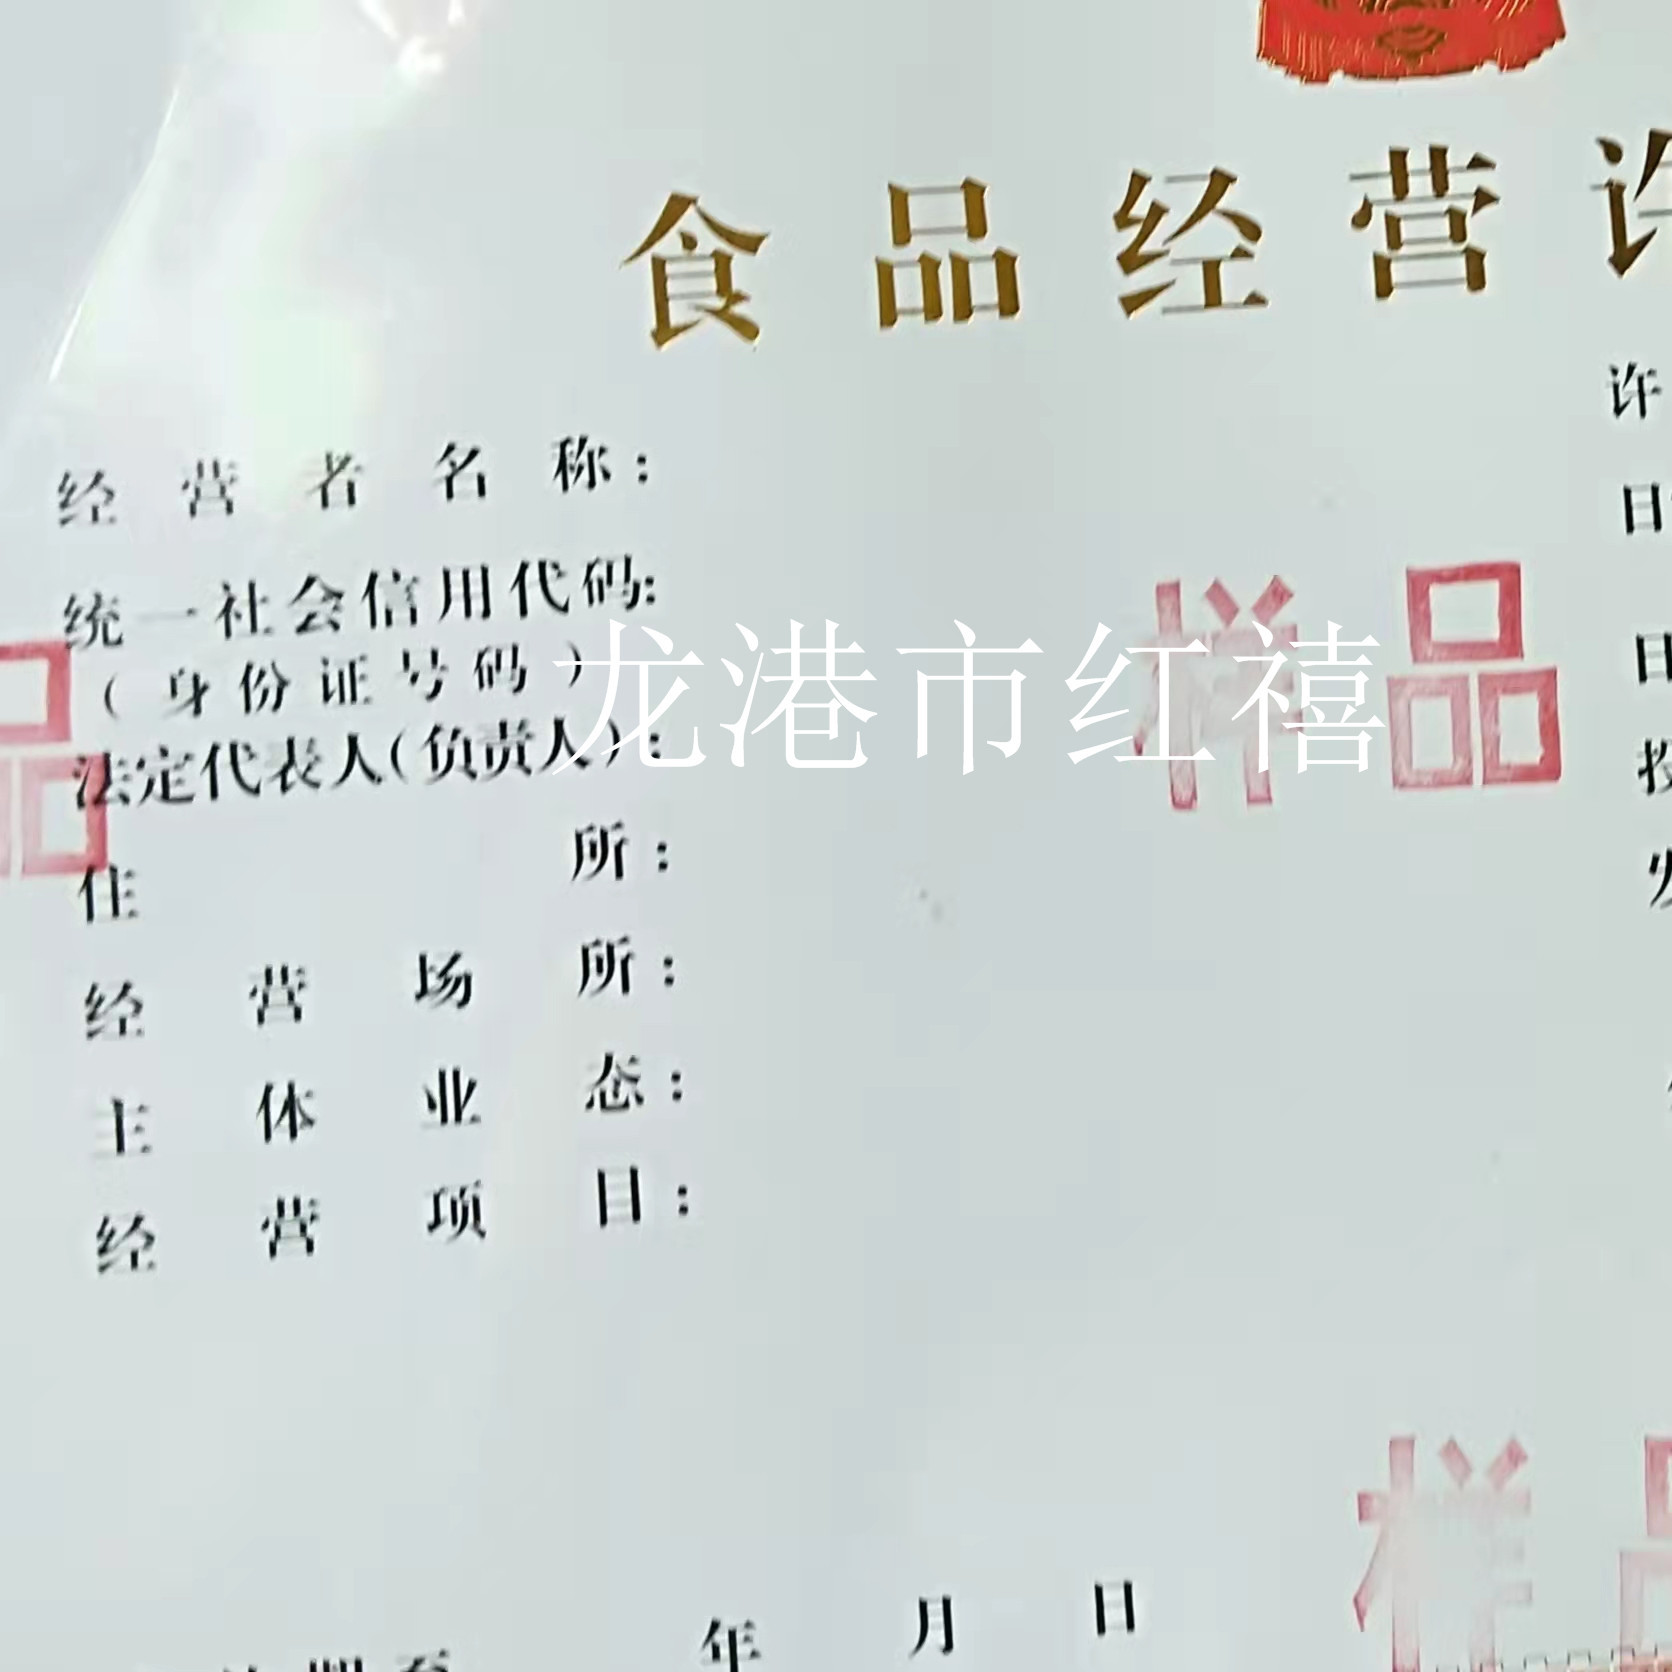 食品经营许
经营者名称：
许
统一社会信用代码：
日
（身份证号码）
样品
品
龙港市红禧
法定代表人（负责人）：
日
投
住所：
发
经营场所：
主体业态：
经营项目：
样品
年月日